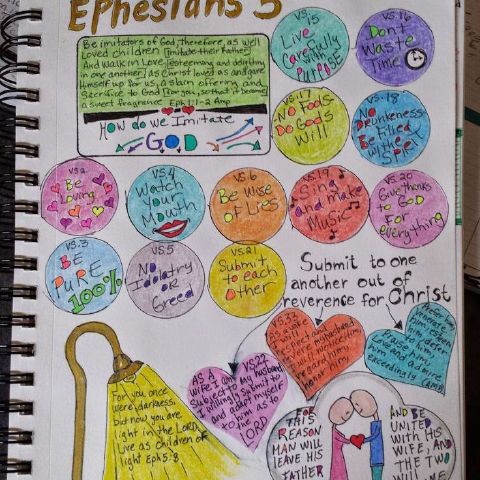 Ephesians 5
Be imitators of God, therefore, as well
Loved children [imitate their Father]
And walk in Love [esteeming and delighting
in one another] as Christ loved us and gave
Himself up for us, a slain offering and
Sacrifice to God [for you, so that it became
a sweet fragrance Eph 1:1-2 Amp
How do we Imitate
GOD
VS.
15
Live
Carefully
with
PURPOSE
VS.16
Dont
Waste
Time
VS.17
No Fools
Do Gods
Will
VS.18
NO
DRUNKENESS
Be filled
w/the
SPIRIT
VS 2
Be
Loving
VS.4
Watch
Your
Mouth
VS.6
Be Wise
OF Lies
VS.19
Sing
and make
Music
VS.20
Give thanks
to GOD
For
everything
VS.3
BE
PURE
100%
VS.5
NO
Idolatry
OR
Greed
VS.21
Submit
to each
Other
Submit to one
another out of
reverence for Christ
VS.33
as a wife
I will
respect and
revere my husband
I will notice him,
regard him,
honor him
prefer him
him
Praise him,
Love and admire
him
exceedingly
(AMP)
VS.22
AS A
wife I am
Subject to my husband
I willing Submit to
and adapt myself
to him as to
the
LORD
For you once
were darkness,
but now you are
light in the LORD.
Live as children of
light Eph 5:8
FOR
THIS
REASON
MAN WILL
LEAVE HIS
FATHER
AND BE
UNITED
WITH HIS
WIFE, AND
THE TWO
WILL